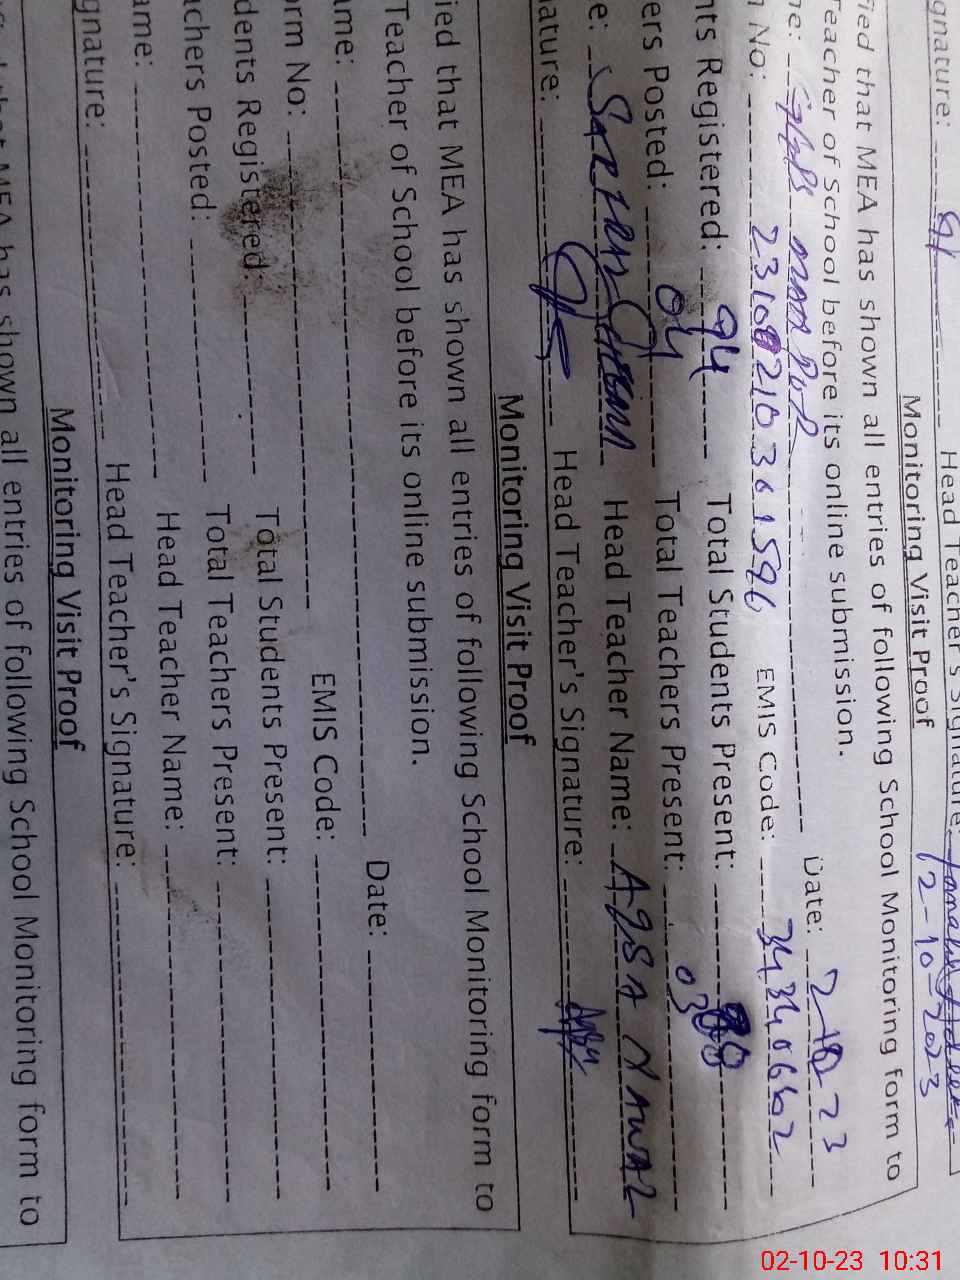 gnature: Head Teacher's Signature:
Monitoring Visit Proof 2-10-2023
fied that MEA has shown all entries of following School Monitoring form to
Teacher of School before its online submission.
me: Date: 2-10-23
No: EMIS Code:
nts Registered: 94 Total Students Present:
ers Posted: 04 Total Teachers Present: 03
e: Head Teacher Name:
ature: Head Teacher's Signature:
Monitoring Visit Proof
ied that MEA has shown all entries of following School Monitoring form to
Teacher of School before its online submission.
ame: Date:
orm No: EMIS Code:
dents Registered: Total Students Present:
achers Posted: Total Teachers Present:
ame: Head Teacher Name:
gnature: Head Teacher's Signature:
Monitoring Visit Proof
that MEA has shown all entries of following School Monitoring form to
02-10-23 10:31